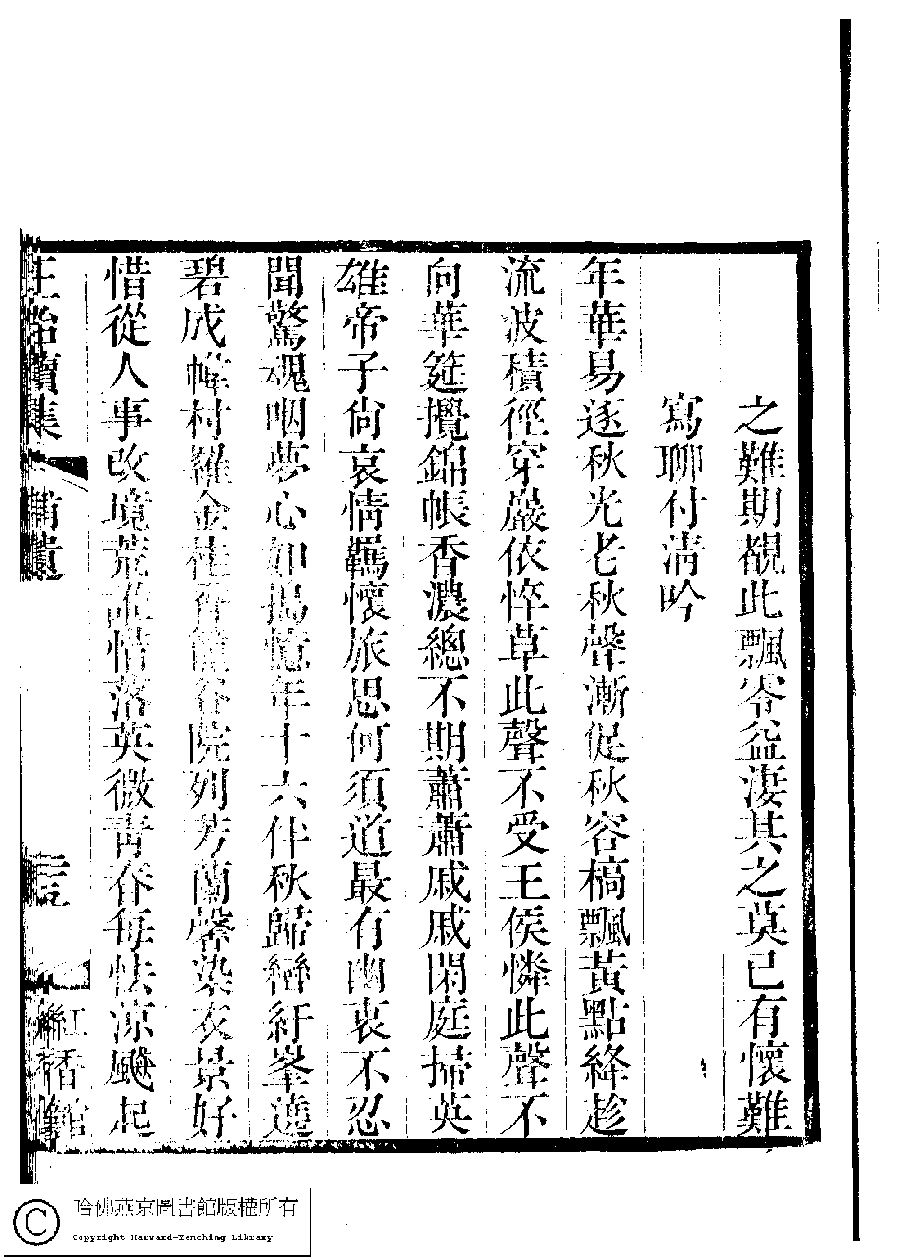 之難期覩此飄零益淒其之莫已有懷難
寫聊付淸吟
年華易逐秋光老秋聲漸促秋容槁飄黃點絳趁
流波積徑穿巖依悴草此聲不受王侯憐此聲不
向華筵攪錦帳香濃總不期蕭蕭戚戚閑庭掃英
雄帝子尙哀情羈懷旅思何須道最有幽衷不忍
聞驚魂咽夢心如搗憶年十六伴秋歸巒紆峯遶
碧成幃村羅金桂 院列芳蘭馨染衣景好
惜從人事改境荒誰惜落英微靑春每怯涼颸起
續集
遺
紅香館
哈佛燕京圖書館版權所有
Copyright Harvard-Yenching Library